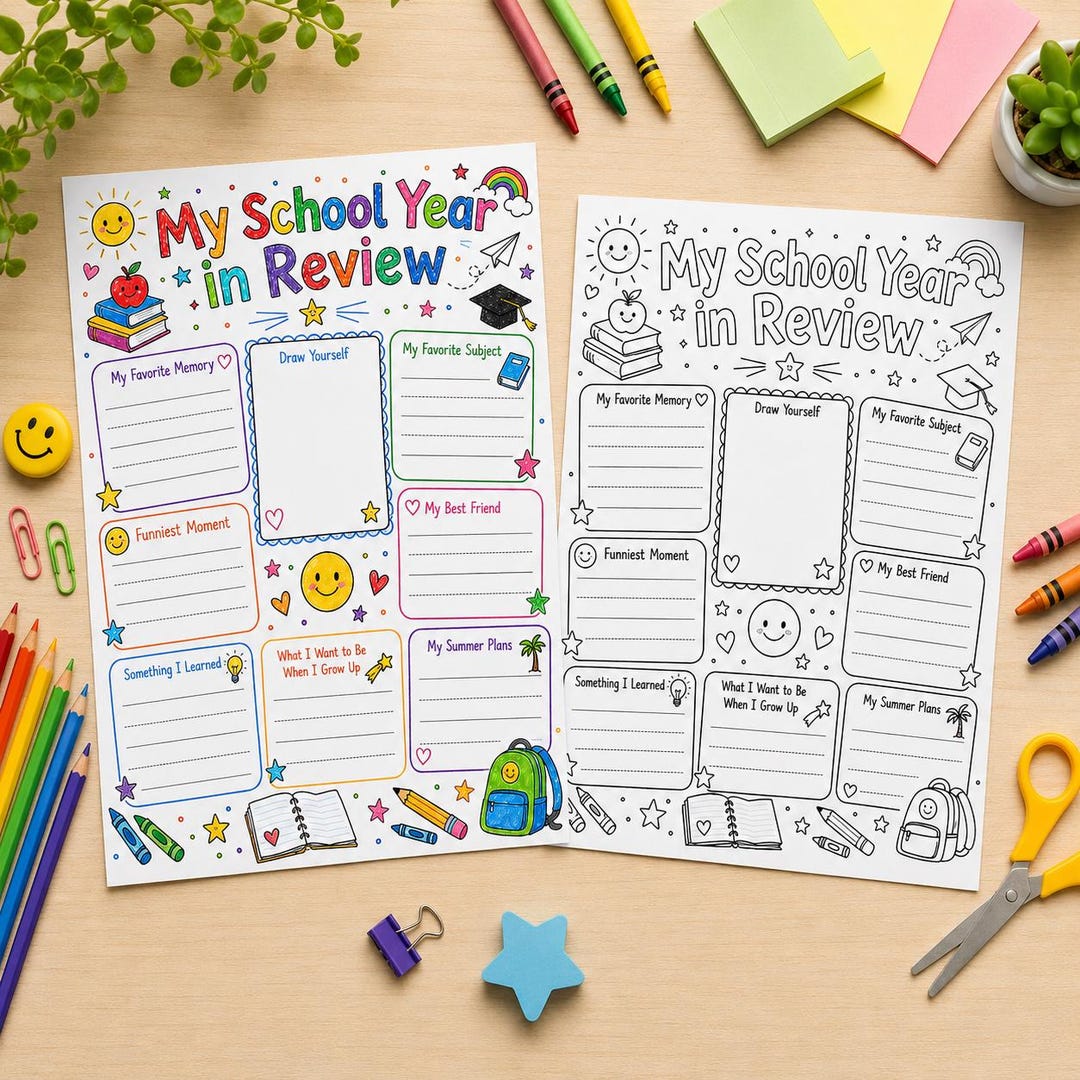 My School Year
in Review
My Favorite Memory
Draw Yourself
My Favorite Subject
Funniest Moment
My Best Friend
Something I Learned
What I Want to Be
When I Grow Up
My Summer Plans
My School Year
in Review
My Favorite Memory
Draw Yourself
My Favorite Subject
Funniest Moment
My Best Friend
Something I Learned
What I Want to Be
When I Grow Up
My Summer Plans